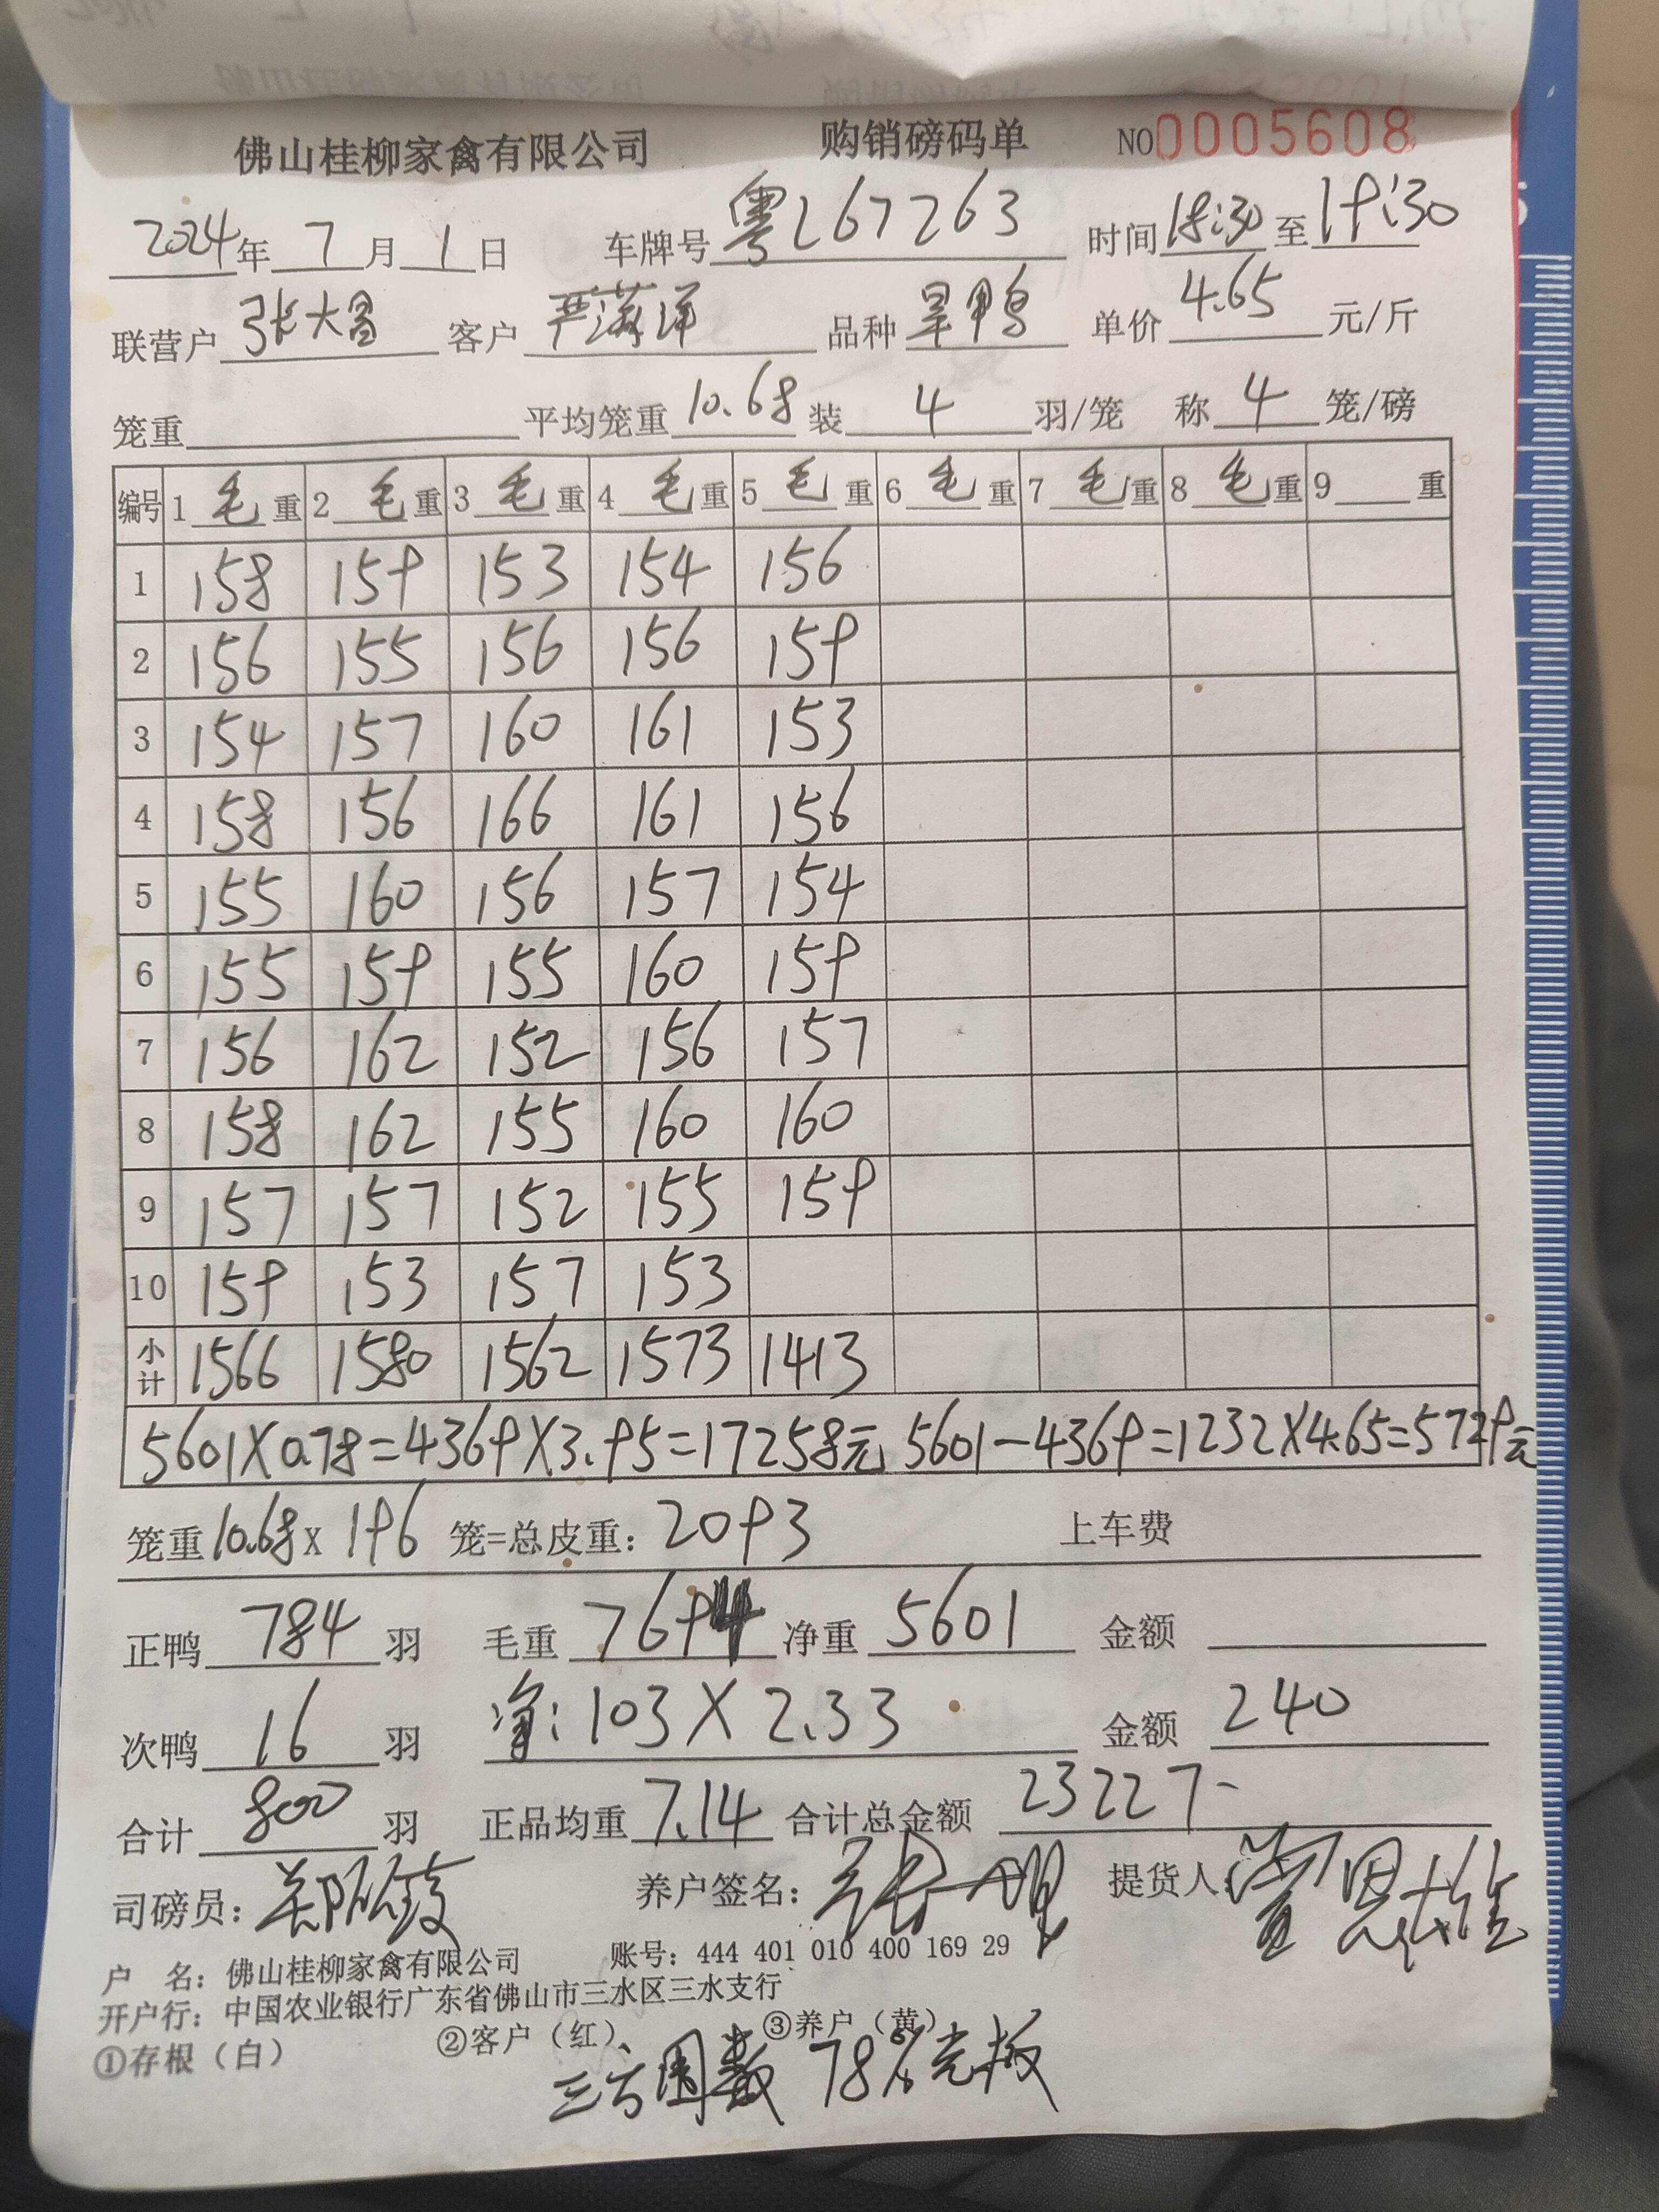 佛山桂柳家禽有限公司 购销磅码单 NO 0005608
2024年 7月 1日 车牌号 粤L67263 时间 18:30 至 19:30
联营户 张大昌 客户 严满洋 品种 旱鸭 单价 4.65 元/斤
笼重 平均笼重 10.68 装 4 羽/笼 称 4 笼/磅
编号 1 毛 重 2 毛 重 3 毛 重 4 毛 重 5 毛 重 6 毛 重 7 毛 重 8 毛 重 9 重
1 158 159 153 154 156
2 156 155 156 156 159
3 154 157 160 161 153
4 158 156 166 161 156
5 155 160 156 157 154
6 155 159 155 160 159
7 156 162 152 156 157
8 158 162 155 160 160
9 157 157 152 155 159
10 159 153 157 153
小计 1566 1580 1562 1573 1413
5601×0.78=4369×3.95=17258元 5601-4369=1232×4.65=5729元
笼重 10.68 x 196 笼=总皮重: 2093 上车费
正鸭 784 羽 毛重 7694 净重 5601 金额
次鸭 16 羽 净:103×2.33 金额 240
合计 800 羽 正品均重 7.14 合计总金额 23227-
司磅员: 养户签名: 提货人:
户 名: 佛山桂柳家禽有限公司 账号: 444 401 010 400 169 29
开户行: 中国农业银行广东省佛山市三水区三水支行
①存根（白） ②客户（红） ③养户（黄）
78%